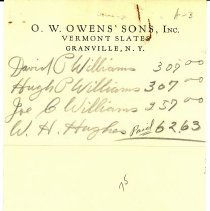 O. W. OWENS' SONS, INC.
VERMONT SLATES
GRANVILLE, N. Y.
David P Williams 307 00
Hugh P Williams 307 00
Joe C Williams 257 00
W. H. Hughes Paid 62 63